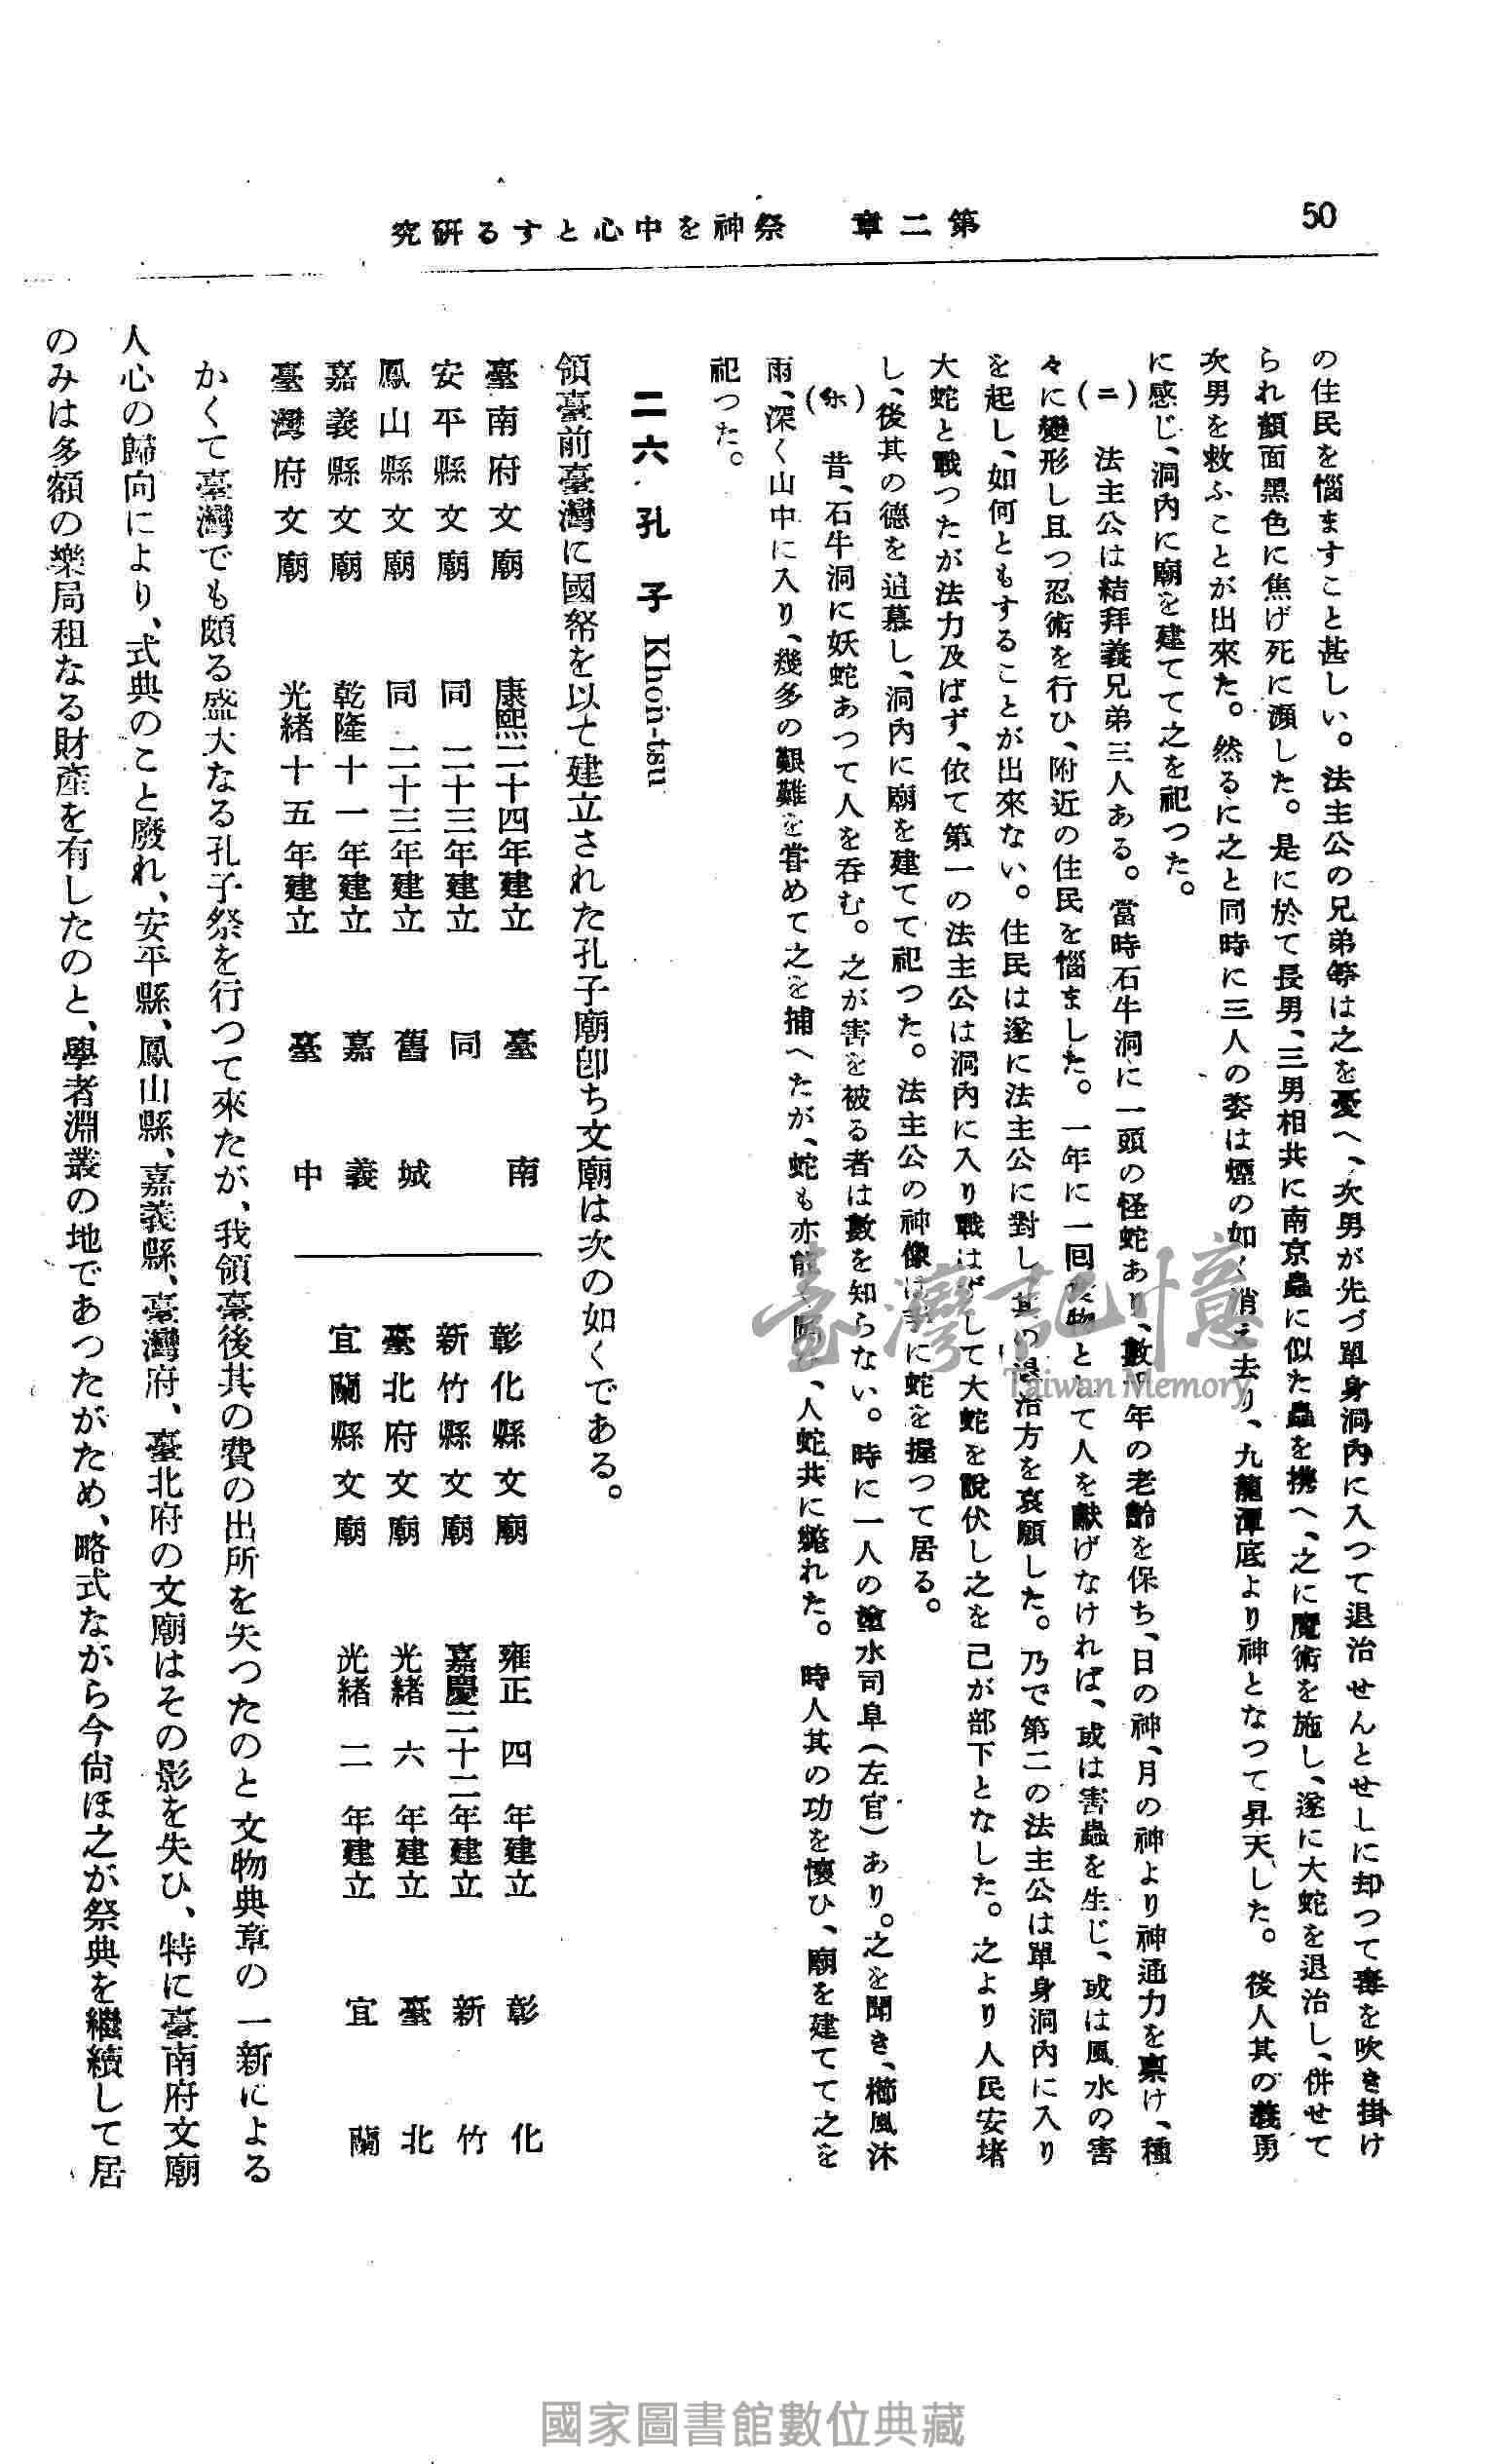 50
第二章　祭神を中心とする研究
の住民を惱ますこと甚しい。法主公の兄弟等は之を憂へ、次男が先づ單身洞內に入つて退治せんとせしに却つて毒を吹き掛け
られ顏面黑色に焦げ死に瀕した。是に於て長男、三男相共に南京蟲に似た蟲を携へ、之に魔術を施し、遂に大蛇を退治し、併せて
次男を救ふことが出來た。然るに之と同時に三人の姿は煙の如く消え去り、九龍潭底より神となつて昇天した。後人其の義勇
に感じ、洞內に廟を建てて之を祀つた。
(ニ)　法主公は結拜義兄弟三人ある。當時石牛洞に一頭の怪蛇あり、數千年の老齡を保ち、日の神、月の神より神通力を禀け、種
々に變形し且つ忍術を行ひ、附近の住民を惱ました。一年に一囘 物として人を獻げなければ、或は害蟲を生じ、或は風水の害
を起し、如何ともすることが出來ない。住民は遂に法主公に對し其の退治方を哀願した。乃で第二の法主公は單身洞內に入り
大蛇と戰つたが法力及ばず、依て第一の法主公は洞內に入り戰はずして大蛇を說伏し之を己が部下となした。之より人民安堵
し、後其の德を追慕し、洞內に廟を建てて祀つた。法主公の神像は手に蛇を握つて居る。
(ホ)　昔、石牛洞に妖蛇あつて人を呑む。之が害を被る者は數を知らない。時に一人の塗水司阜(左官)あり。之を聞き、櫛風沐
雨、深く山中に入り、幾多の艱難を甞めて之を捕へたが、蛇も亦 、人蛇共に斃れた。時人其の功を懷ひ、廟を建てて之を
祀つた。
二六、孔子 Khoń-tsu
領臺前臺灣に國帑を以て建立された孔子廟卽ち文廟は次の如くである。
臺南府文廟　康熙二十四年建立　臺南
安平縣文廟　同二十三年建立　同
鳳山縣文廟　同二十三年建立　舊城
嘉義縣文廟　乾隆十一年建立　嘉義
臺灣府文廟　光緖十五年建立　臺中
彰化縣文廟　雍正四年建立　彰化
新竹縣文廟　嘉慶二十二年建立　新竹
臺北府文廟　光緖六年建立　臺北
宜蘭縣文廟　光緖二年建立　宜蘭
かくて臺灣でも頗る盛大なる孔子祭を行つて來たが、我領臺後其の費の出所を失つたのと文物典章の一新による
人心の歸向により、式典のこと廢れ、安平縣、鳳山縣、嘉義縣、臺灣府、臺北府の文廟はその影を失ひ、特に臺南府文廟
のみは多額の樂局租なる財產を有したのと、學者淵叢の地であつたがため、略式ながら今尙ほ之が祭典を繼續して居
臺灣記憶
Taiwan Memory
國家圖書館數位典藏